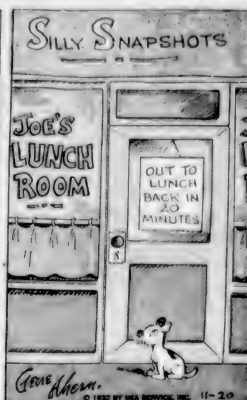 SILLY SNAPSHOTS
JOE'S
LUNCH
ROOM
OUT TO
LUNCH
BACK IN
20
MINUTES
Gene Ahern.
© 1932 BY NEA SERVICE, INC. 11-20